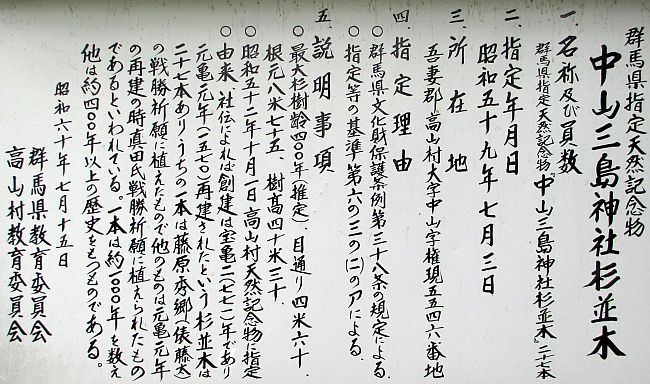 群馬県指定天然記念物
中山三島神社杉並木
一、名称及び員数
群馬県指定天然記念物「中山三島神社杉並木」二七本
二、指定年月日
昭和五十九年七月三日
三、所在地
吾妻郡高山村大字中山字権現五五四六番地
四、指定理由
○群馬県文化財保護条例第三十八条の規定による。
○指定等の基準第六の三の(二)のアによる。
五、説明事項
○最大杉樹齢四〇〇年(推定)、目通り四米六十、
根元八米七十五、樹高四十米三十、
○昭和五十二年十月一日高山村天然記念物に指定
○由来、社伝によれば創建は宝亀二(七七一)年であり
元亀元年(一五七〇)再建されたという杉並木は
二十七本あり、うちの一本は藤原秀郷(俵藤太)
の戦勝祈願に植えたもので他のものは元亀元年
の再建の時真田氏戦勝祈願に植えられたもの
であるといわれている。一本は約一〇〇〇年を数え
他は約四〇〇年以上の歴史をもつものである。
昭和六十年七月十五日
群馬県教育委員会
高山村教育委員会